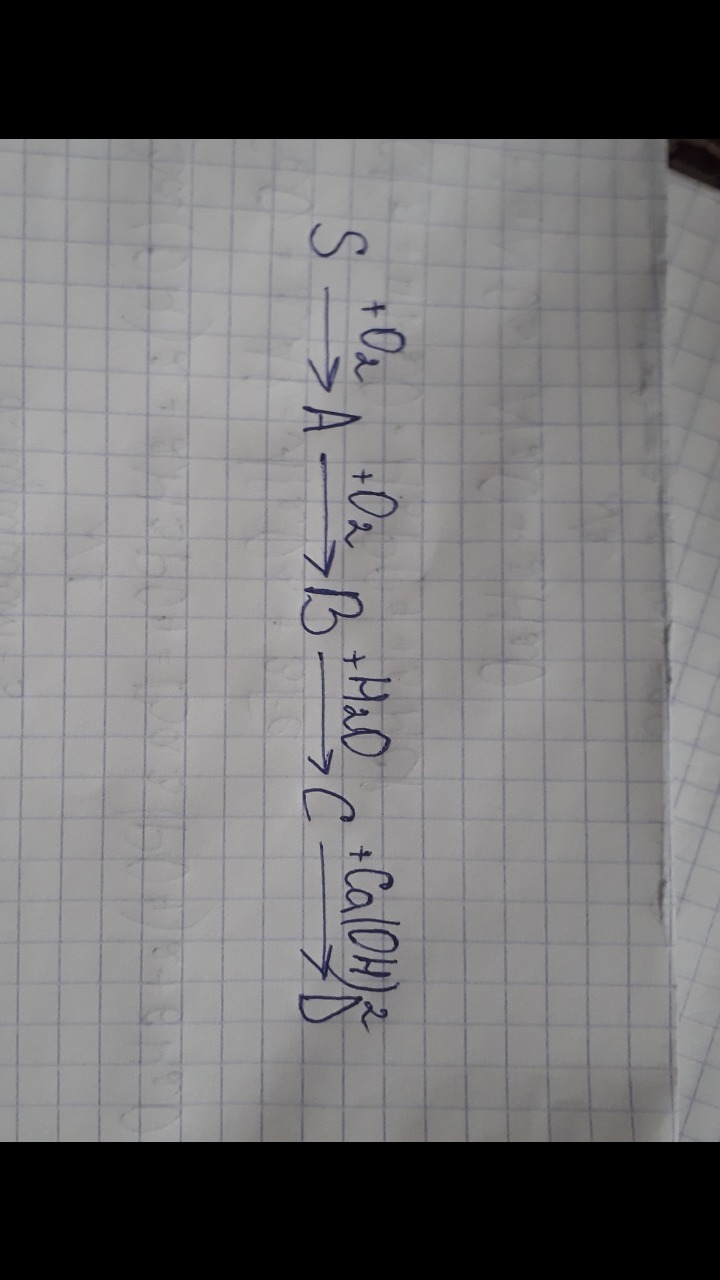 S +O2→ A +O2→ B +H2O→ C +Ca(OH)2→ D